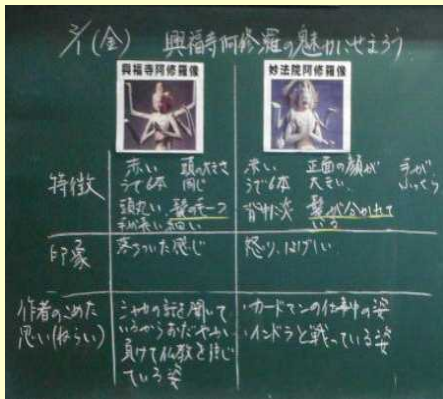 2/1(金) 興福寺阿修羅の魅力にせまろう
興福寺阿修羅像
妙法院阿修羅像
特徴
赤い 頭の大きさ
うで6本 同じ
頭丸い、髪の毛一つ
手が長い細い
赤い 正面の顔が 手が
うで6本 大きい、 ふっくら
髪が分かれて
いる
印象
落ちついた感じ
怒り、はげしい
作者のこめた
思い(ねらい)
シャカの話を聞いて
いるからおだやか
負けて仏教を信じ
ている姿
・ガードマンの仕事中の姿
・インドラと戦っている姿